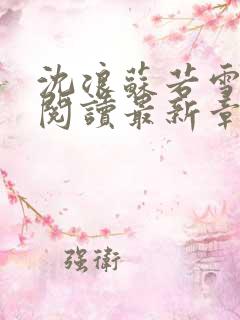 沈浪蘇若雪
閱讀最新章
强衛